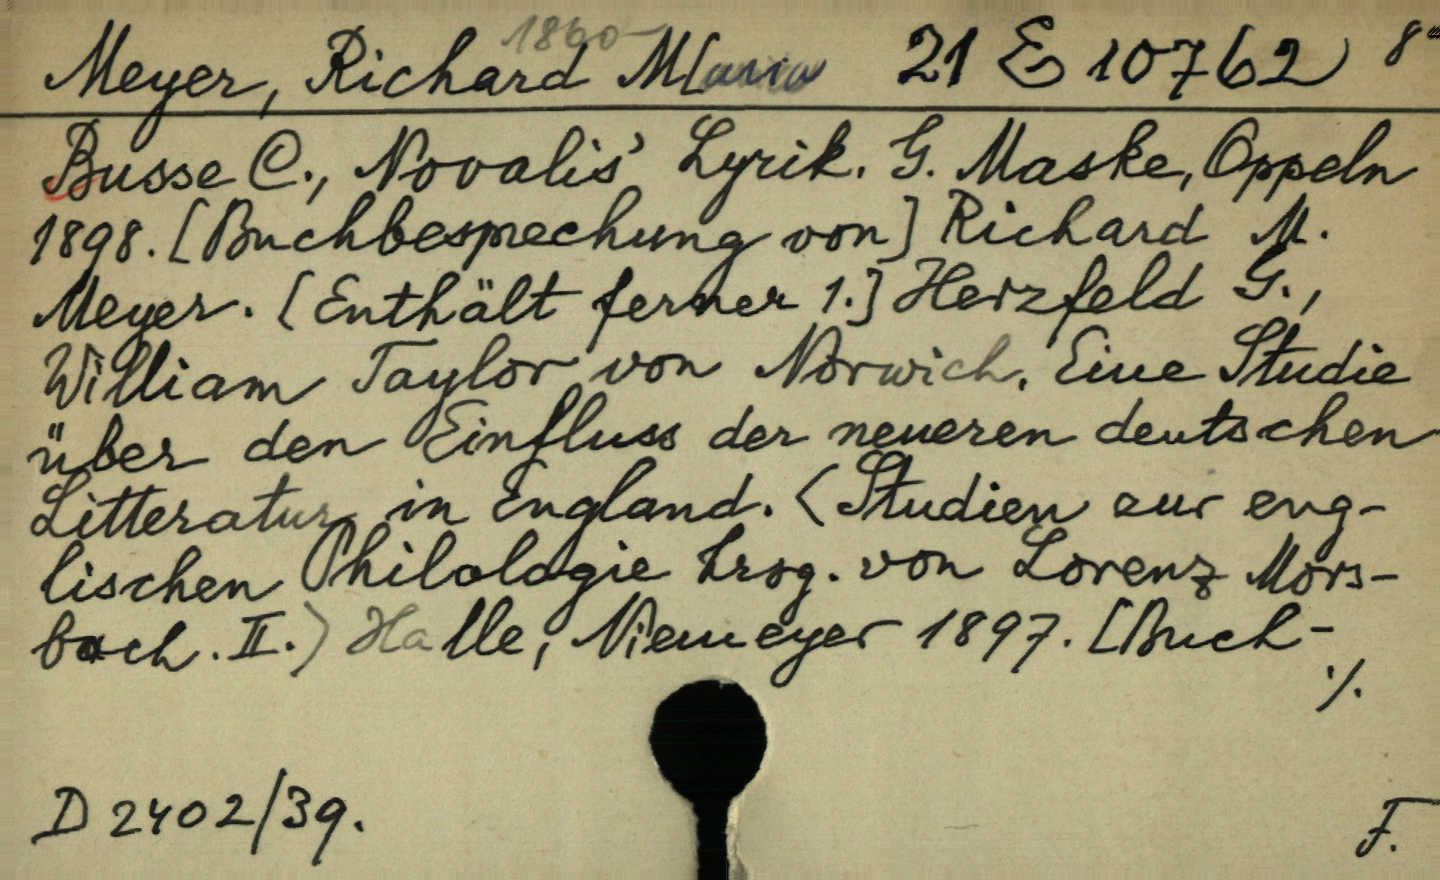 1860-
Meyer, Richard M[aria 21 E 10762 8°
Busse C., Novalis' Lyrik. G. Maske, Oppeln
1898. [Buchbesprechung von] Richard M.
Meyer. [Enthält ferner 1.] Herzfeld G.,
William Taylor von Norwich. Eine Studie
über den Einfluss der neueren deutschen
Litteratur in England. <Studien zur eng-
lischen Philologie hrsg. von Lorenz Mors-
bach. II.) Halle, Niemeyer 1897. [Buch-
./.
D 2402/39.
F.